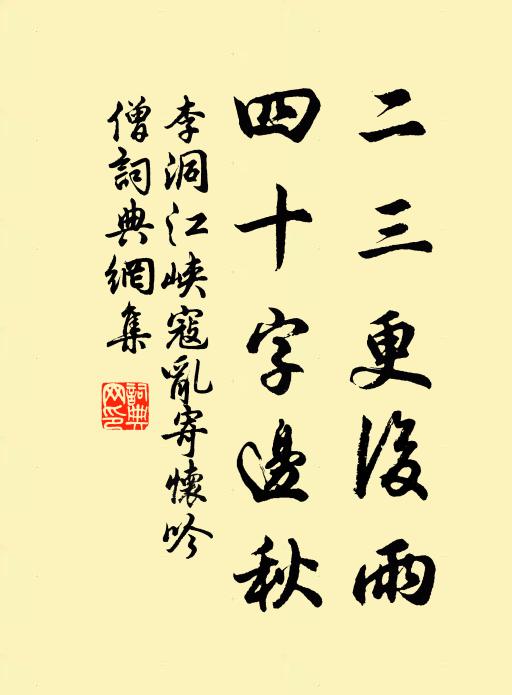 二三更後雨
四十字邊秋
李洞江峽寇亂寄懷吟
僧詞典網集
詞典
网印